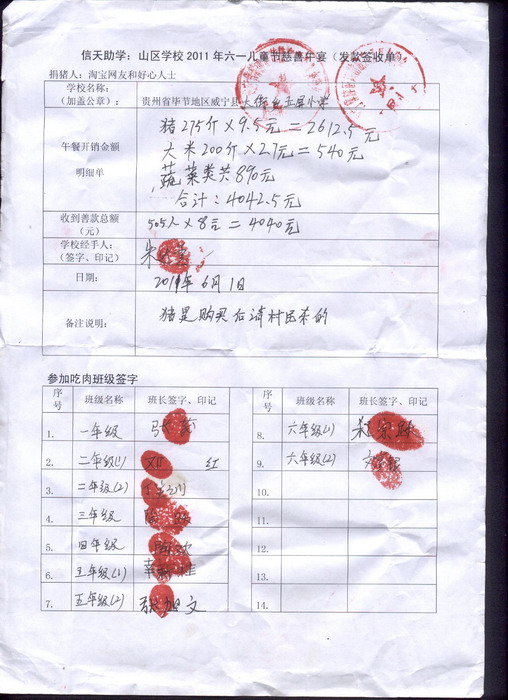 信天助学：山区学校 2011 年六一儿童节慈善午宴（发款签收单
捐猪人：淘宝网友和好心人士
学校名称：
（加盖公章）：
贵州省毕节地区威宁县大街乡五星小学
午餐开销金额
明细单
猪275斤×9.5元=2612.5元
大米200斤×2.7元=540元
蔬菜类共890元
合计：4042.5元
收到善款总额
（元）
505人×8元=4040元
学校经手人：
（签字、印记）
朱
日期：
2011年6月1日
备注说明：
猪是购买后请村民杀的
参加吃肉班级签字
序号 班级名称 班长签字、印记 序号 班级名称 班长签字、印记
1. 一年级 8. 六年级(1)
2. 二年级(1) 邓 红 9. 六年级(2)
3. 二年级(2) 10.
4. 三年级 11.
5. 四年级 欢 12.
6. 五年级(1) 13.
7. 五年级(2) 张旭文 14.